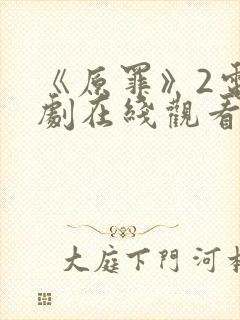 《原罪》2電
劇在綫觀看
大庭下門河本